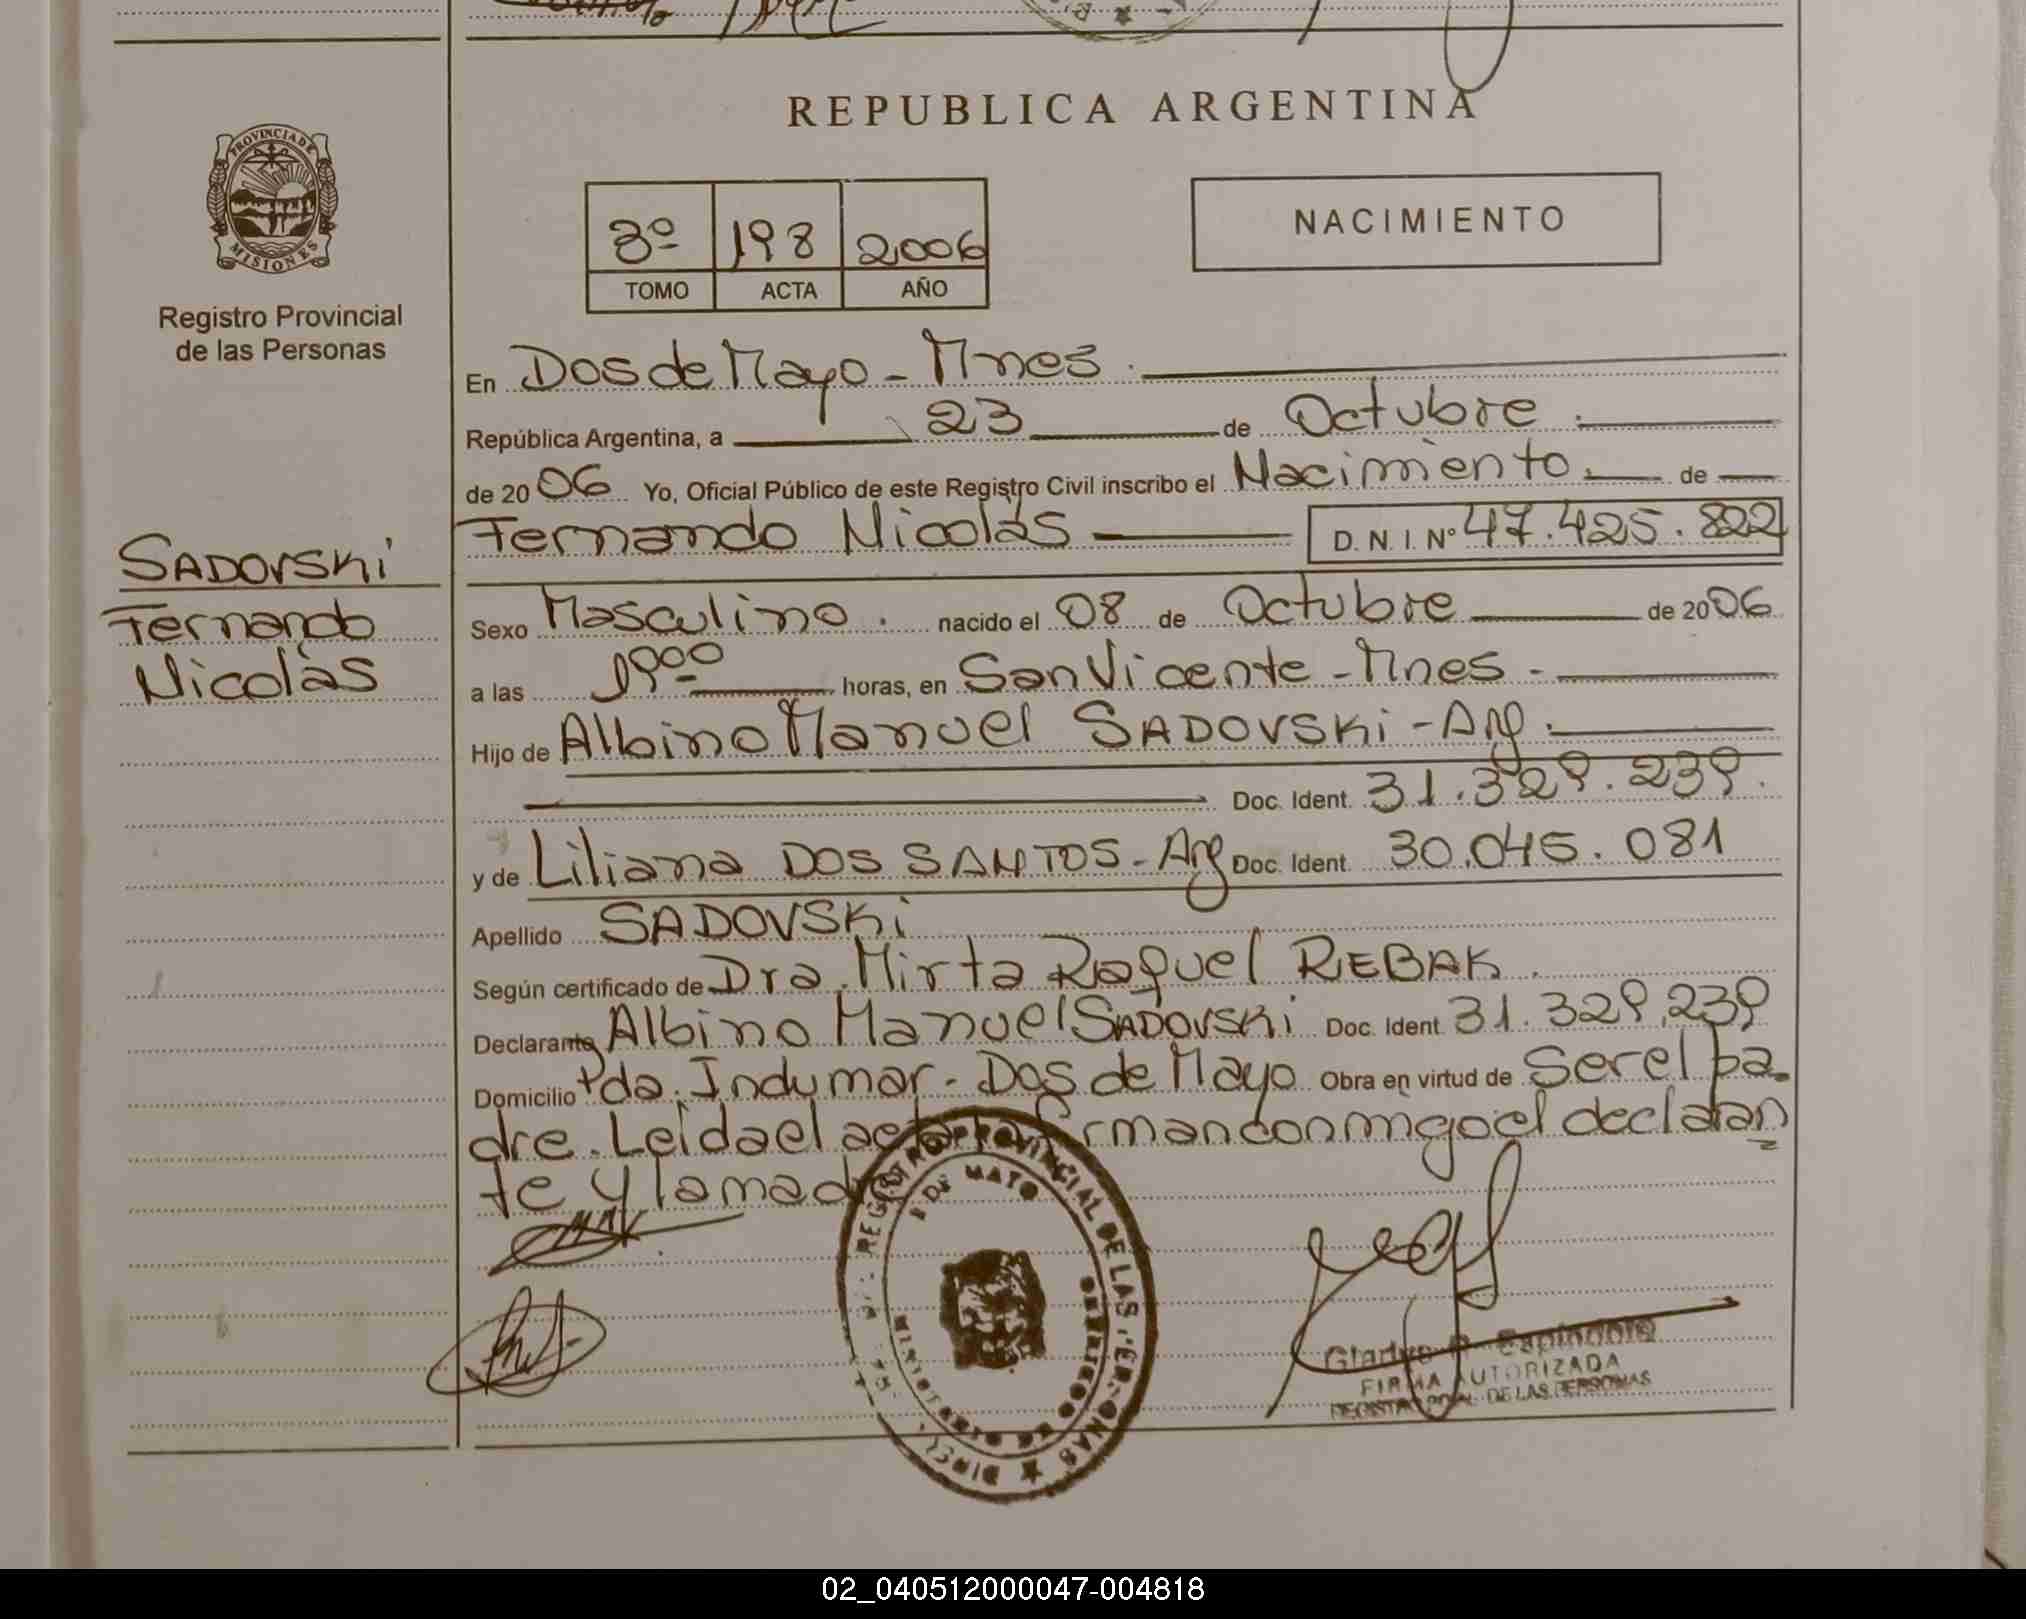 REPUBLICA ARGENTINA
PROVINCIA DE
MISIONES
Registro Provincial
de las Personas
3º 198 2006
TOMO ACTA AÑO
NACIMIENTO
En Dos de Mayo - Mnes.
República Argentina, a 23 de Octubre.
de 2006 Yo, Oficial Público de este Registro Civil inscribo el Nacimiento. de
Fernando Nicolás D.N.I. Nº 47.425.822
SADOVSKi
Fernando
Nicolás
Sexo Masculino. nacido el 08 de Octubre de 2006
a las 19ºº horas, en San Vicente - Mnes -
Hijo de Albino Manuel SADOVSKi - Arg.
Doc. Ident. 31.329.239.
y de Liliana DOS SANTOS - Arg Doc. Ident. 30.045.081
Apellido SADOVSKi
Según certificado de Dra. Mirta Raquel REBAK.
Declarante Albino Manuel SADOVSKi Doc. Ident. 31.329.239
Domicilio Pda. Indumar - Dos de Mayo Obra en virtud de Ser el pa-
dre. Leida el acta firman conmigo el declaran
te y la madre
REGISTRO PROVINCIAL DE LAS PERSONAS
DE MAYO
MINISTERIO DE GOBIERNO
Gladys
FIRMA AUTORIZADA
REGISTRO PCIAL. DE LAS PERSONAS
02_040512000047-004818